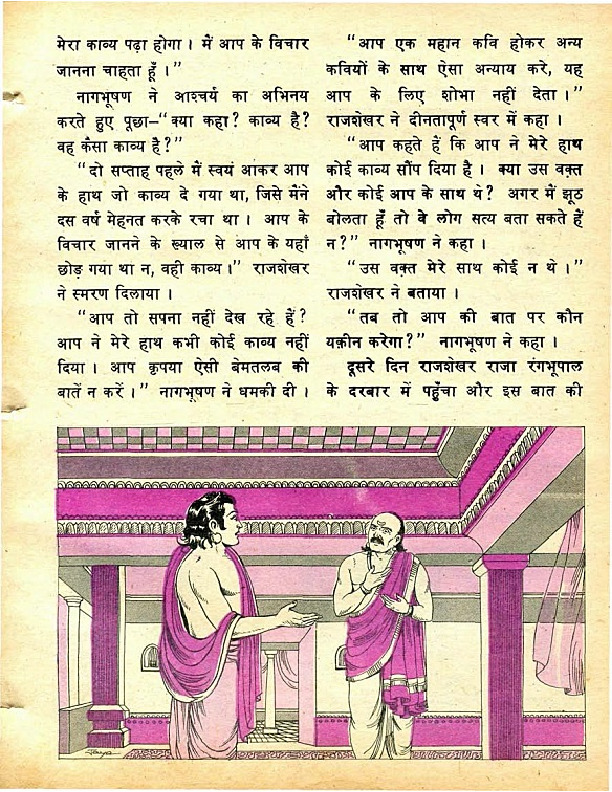 मेरा काव्य पढ़ा होगा । मैं आप के विचार
जानना चाहता हूँ ।”
नागभूषण ने आश्चर्य का अभिनय
करते हुए पूछा–“क्या कहा? काव्य है?
वह कैसा काव्य है?”
“दो सप्ताह पहले मैं स्वयं आकर आप
के हाथ जो काव्य दे गया था, जिसे मैंने
दस वर्ष मेहनत करके रचा था । आप के
विचार जानने के ख्याल से आप के यहाँ
छोड़ गया था न, वही काव्य ॥” राजशेखर
ने स्मरण दिलाया ।
“आप तो सपना नहीं देख रहे हैं?
आप ने मेरे हाथ कभी कोई काव्य नहीं
दिया । आप कृपया ऐसी बेमतलब की
बातें न करें ।” नागभूषण ने धमकी दी ।
“आप एक महान कवि होकर अन्य
कवियों के साथ ऐसा अन्याय करे, यह
आप के लिए शोभा नहीं देता ।”
राजशेखर ने दीनतापूर्ण स्वर में कहा ।
“आप कहते हैं कि आप ने मेरे हाथ
कोई काव्य सौंप दिया है । क्या उस वक़्त
और कोई आप के साथ थे? अगर मैं झूठ
बोलता हूँ तो वे लोग सत्य बता सकते हैं
न?” नागभूषण ने कहा ।
“उस वक़्त मेरे साथ कोई न थे ।”
राजशेखर ने बताया ।
“तब तो आप की बात पर कौन
यक़ीन करेगा?” नागभूषण ने कहा ॥
दूसरे दिन राजशेखर राजा रंगभूपाल
के दरबार में पहुँचा और इस बात की